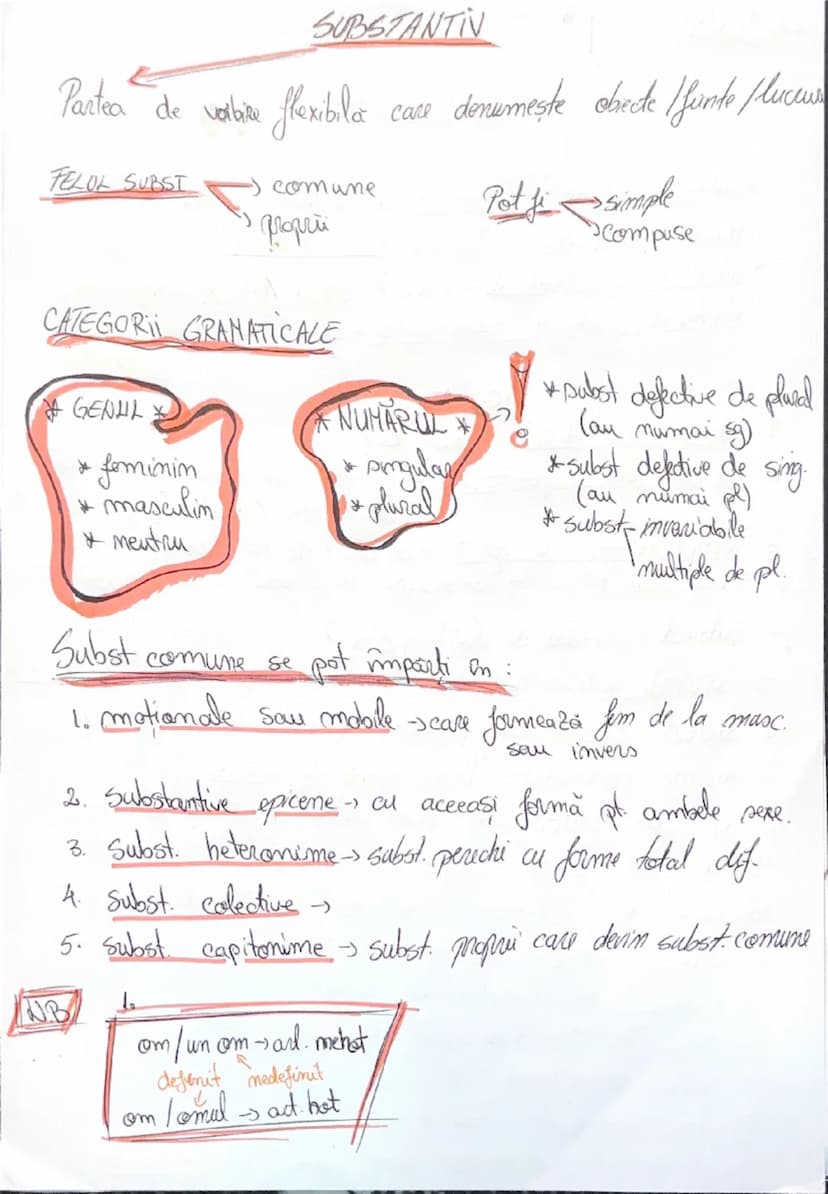 SUBSTANTIV
Partea de vorbire flexibilă care denumește obiecte / ființe /
FELUL SUBST → comune
→ proprii
Pot fi → simple
→ compuse
CATEGORII GRAMATICALE
* GENUL *
* feminin
* masculin
* neutru
* NUMĂRUL *
* singular
* plural
→ !
* subst defective de plural
(au numai sg)
* subst defective de sing.
(au numai pl)
* subst invariabile
multiple de pl.
Subst comune se pot împărți în :
1. moționale sau mobile → care formează fem de la masc.
sau invers
2. Substantive epicene → cu aceeași formă pt. ambele sexe.
3. Subst. heteronime → subst. perechi cu forme total dif.
4. Subst. colective →
5. subst. capitonime → subst. proprii care devin subst. comune
N.B
1.
om / un om → art. nehot
definit nedefinit
om / omul → art. hot